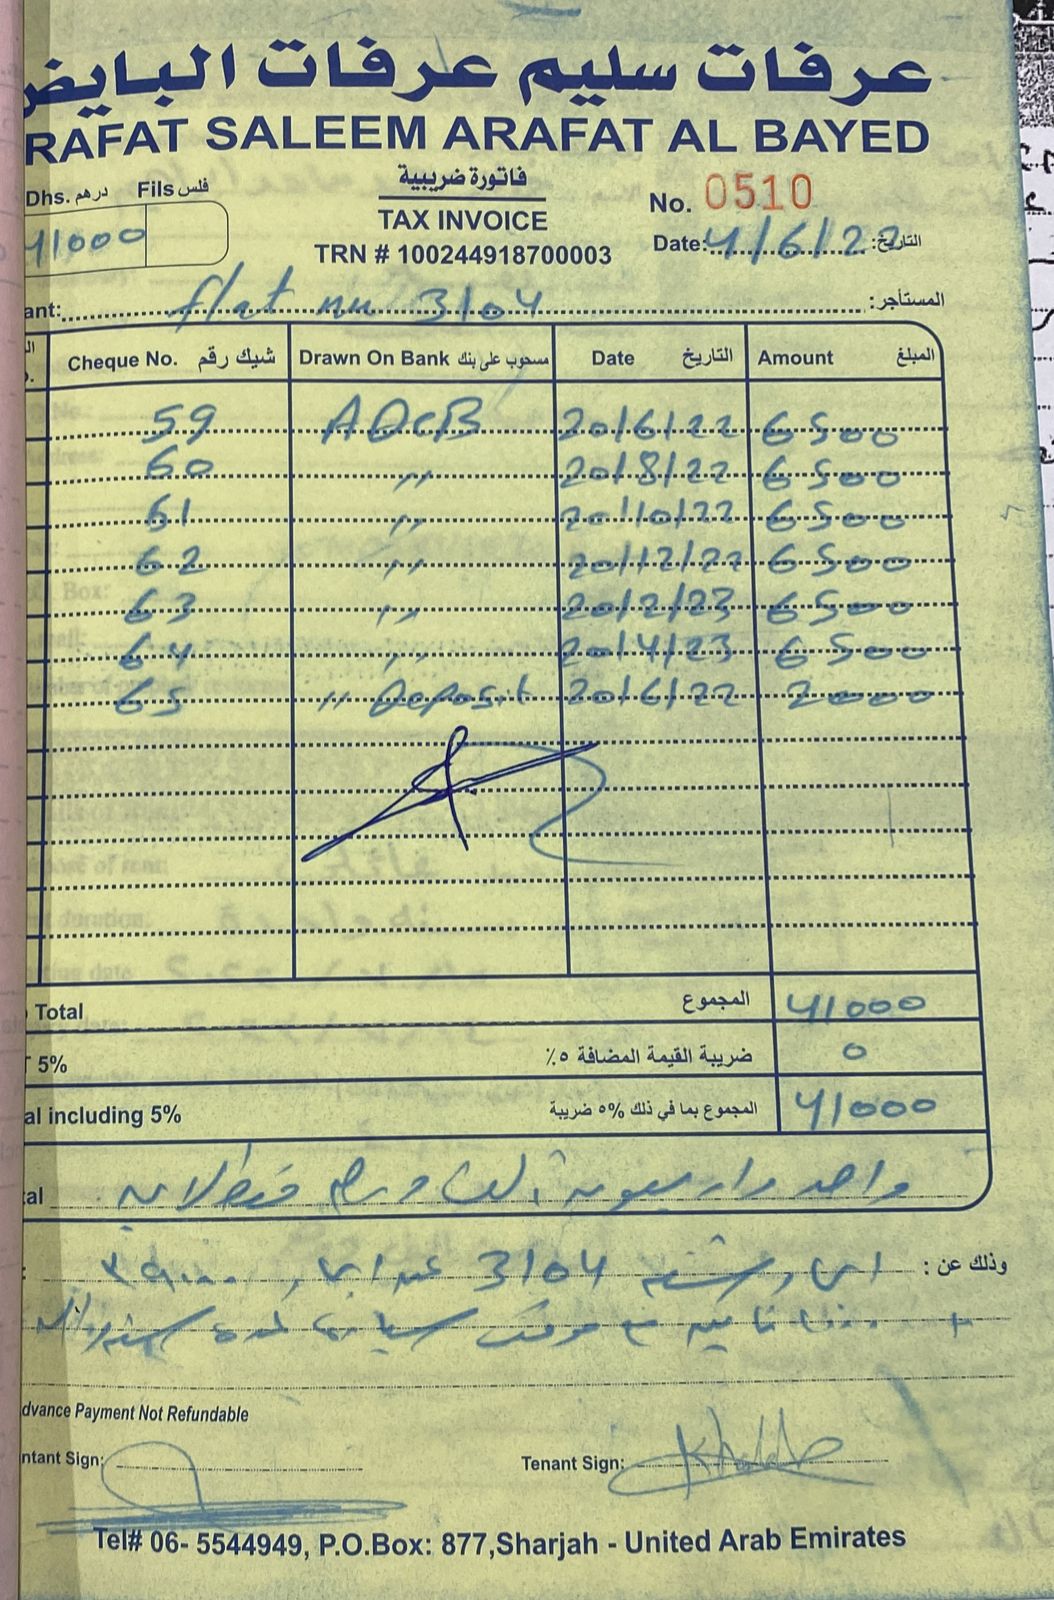 عرفات سليم عرفات البايض
RAFAT SALEEM ARAFAT AL BAYED
Dhs. درهم Fils فلس
41000
فاتورة ضريبية
TAX INVOICE
TRN # 100244918700003
No. 0510
Date: 4/6/22 التاريخ:
ant: flat nu 3104 المستأجر:
Cheque No. شيك رقم Drawn On Bank مسحوب على بنك Date التاريخ Amount المبلغ
59 ADCB 20/6/22 6500
60 " 20/8/22 6500
61 " 20/10/22 6500
62 " 20/12/22 6500
63 " 20/2/23 6500
64 " 20/4/23 6500
65 " Deposit 20/6/22 2000
Total المجموع 41000
5% ضريبة القيمة المضافة ٥٪ 0
al including 5% المجموع بما في ذلك 5% ضريبة 41000
tal واحد واربعون الف درهم فقط لاغير
وذلك عن : 3104 ٣٩٠٠٠
dvance Payment Not Refundable
ntant Sign: Tenant Sign:
Tel# 06- 5544949, P.O.Box: 877,Sharjah - United Arab Emirates